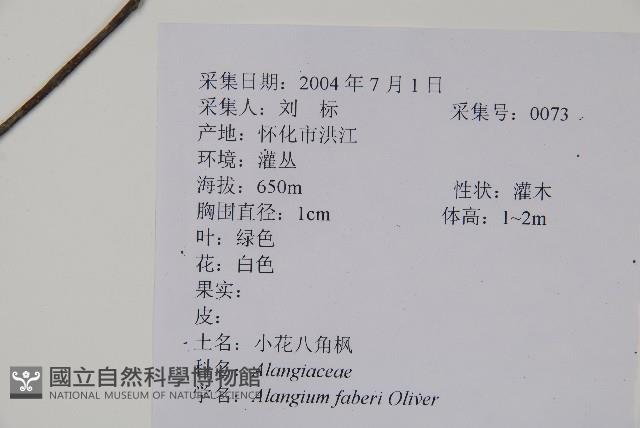 采集日期：2004 年 7 月 1 日
采集人：刘　标　采集号：0073
产地：怀化市洪江
环境：灌丛
海拔：650m　性状：灌木
胸围直径：1cm　体高：1~2m
叶：绿色
花：白色
果实：
皮：
土名：小花八角枫
科名：Alangiaceae
学名：Alangium faberi Oliver
國立自然科學博物館
NATIONAL MUSEUM OF NATURAL SCIENCE